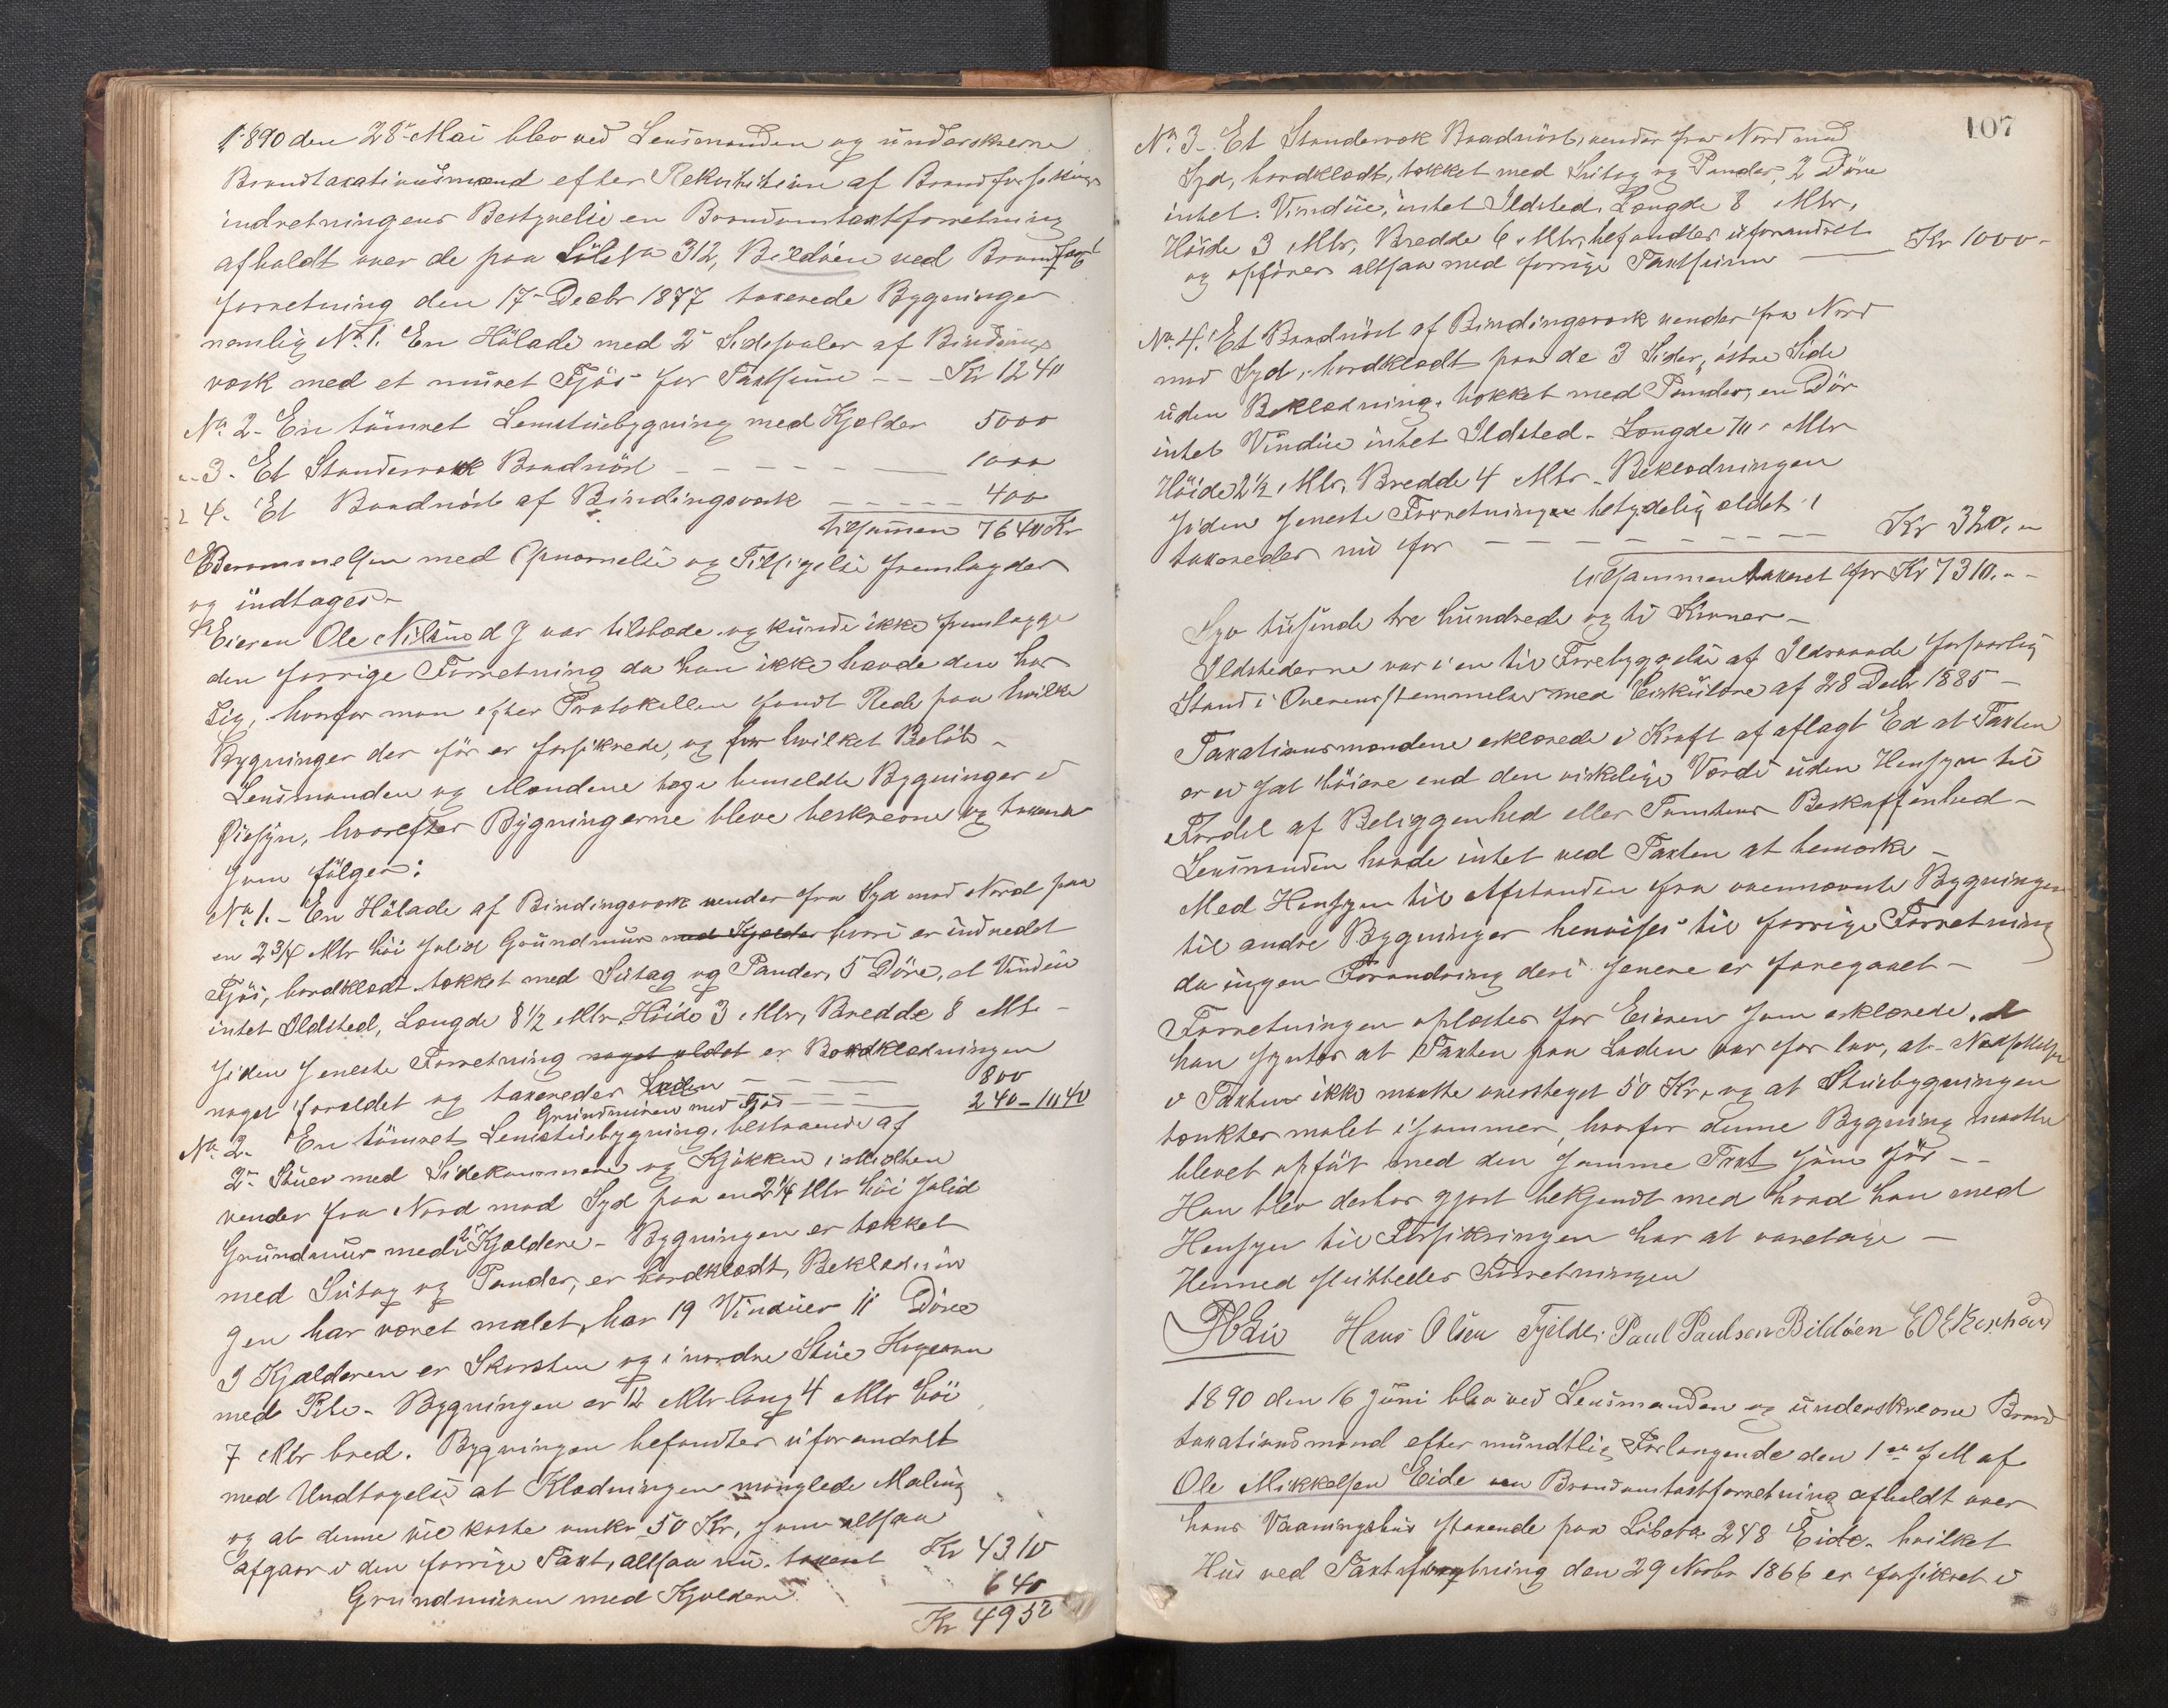 1890 den 28de Mai blev ved Lensmanden og underskrevne
Brandtaxationsmænd efter Rekvisition af Brandforsikrings
indretningens Bestyrelse en Brandomtaxtforretning
afholdt over de paa Löbe No 312, Bildöen ved Brandtaxt
forretning den 17de Decbr 1877 taxerede Bygninger
nemlig No 1. En Hölade med 2de Sidesvaler af Bindings
værk med et muret Fjös for Taxtsum - - - Kr 1240
No 2. En tömret Lemstuebygning med Kjelder 5000
" 3. Et Standerværk Baadnöst - - - - - 1000
" 4. Et Baadnöst af Bindingsværk - - - - 400
tilsammen 7640 Kr
Berammelsen med Opnævnelse og Tilsigelse fremlagdes
og indtages.
Eieren Ole Nilsen d y var tilstæde og kunde ikke fremlægge
den forrige Forretning da han ikke havde den hos
sig, hvorfor man efter Protokollen fandt Rede paa hvilke
Bygninger der för er forsikrede, og for hvilket Belöb -
Lensmanden og Mændene toge bemeldte Bygninger i
Öiesyn, hvorefter Bygningerne bleve beskrevne og taxerede
som fölger:
No 1. - En Hölade af Bindingsværk vender fra Syd mod Nord paa
en 2 3/4 Mtr höi solid Grundmur med Kjelder hvori er indredet
Fjös, bordklædt, tækket med Sutag og Pander, 5 Döre, et Vindue
intet Ildsted, Længde 8 1/2 Mtr, Höide 3 Mtr, Bredde 8 Mtr -
Siden seneste Forretning noget ældet er Bordklædningen
noget forældet og taxeredes Laden - - - 800
Grundmuren med Fjös - - - 240 - 1040
No 2. En tömret Lemstuebygning, bestaaende af
2de Stuer med Sidekammere og Kjökken i Midten
vender fra Nord mod Syd paa en 2 1/4 Mtr höi solid
Grundmur med 2de Kjeldere - Bygningen er tækket
med Sutag og Pander, er bordklædt, Beklædnin
gen har været malet, har 19 Vinduer 11 Döre
I Kjelderen er Skorsten og i nordre Stue Kogeovn
med Pibe. Bygningen er 12 Mtr lang 4 Mtr höi
7 Mtr bred. Bygningen befandtes uforandret
med Undtagelse at Klædningen manglede Maling
og at denne vil koste omkr 50 Kr, som altsaa
afgaar i den forrige Taxt, altsaa nu taxeret Kr 4310
Grundmuren med Kjeldere 640
Kr 4950
107
No 3. Et Standerværk Baadnöst, vender fra Nord mod
Syd, bordklædt, tækket med Sutag og Pander, 2 Döre
intet Vindue, intet Ildsted. Længde 8 Mtr,
Höide 3 Mtr, Bredde 6 Mtr, befandtes uforandret
og opföres altsaa med forrige Taxtsum — Kr 1000 -
No 4. Et Baadnöst af Bindingsværk vender fra Nord
mod Syd, bordklædt paa de 3 Sider, östre Side
uden Beklædning, tækket med Pander, en Dör
intet Vindue intet Ildsted. Længde 7 Mtr
Höide 2 1/2 Mtr, Bredde 4 Mtr - Beklædningen
siden seneste Forretning betydelig ældet
taxeredes nu for - - - - - - - - - Kr 320,"
tilsammen taxeret for Kr 7310."
Syv tusinde tre hundrede og ti Kroner -
Ildstederne var i en til Forebyggelse af Ildsvaade forsvarlig
Stand i Overensstemmelse med Cirkulære af 28 Decbr 1885 -
Taxationsmændene erklærede i Kraft af aflagt Ed at Taxten
er ei sat höiere end den virkelige Værdi uden Hensyn til
Fordel af Beliggenhed eller Tomtens Beskaffenhed -
Lensmanden havde intet ved Taxten at bemærke -
Med Hensyn til Afstanden fra ovennævnte Bygninger
til andre Bygninger henvises til forrige Forretning
da ingen Forandring deri senere er foregaaet -
Forretningen oplæstes for Eieren som erklærede, at
han syntes at Taxten paa Laden var for lav, at Nedsættelsen
i Taxten ikke maatte oversteget 50 Kr, og at Stuebygningen
tænktes malet i sommer, hvorfor denne Bygning maatte
blevet opfört med den samme Taxt som för - -
Han blev derhos gjort bekjendt med hvad han med
Hensyn til Forsikringen har at varetage -
Hermed sluttedes Forretningen
Hans Olsen Fjelde. Paul Paulsen Bildöen
1890 den 16 Juni blev ved Lensmanden og underskrevne Brand
taxationsmænd efter mundtlig Forlangende den 1ste d M af
Ole Mikkelsen Eide en Brandomtaxtforretning afholdt over
hans Vaaningshus staaende paa Löbe No 248 Eide, hvilket
Hus ved Taxtforretning den 29 Novbr 1866 er forsikret i